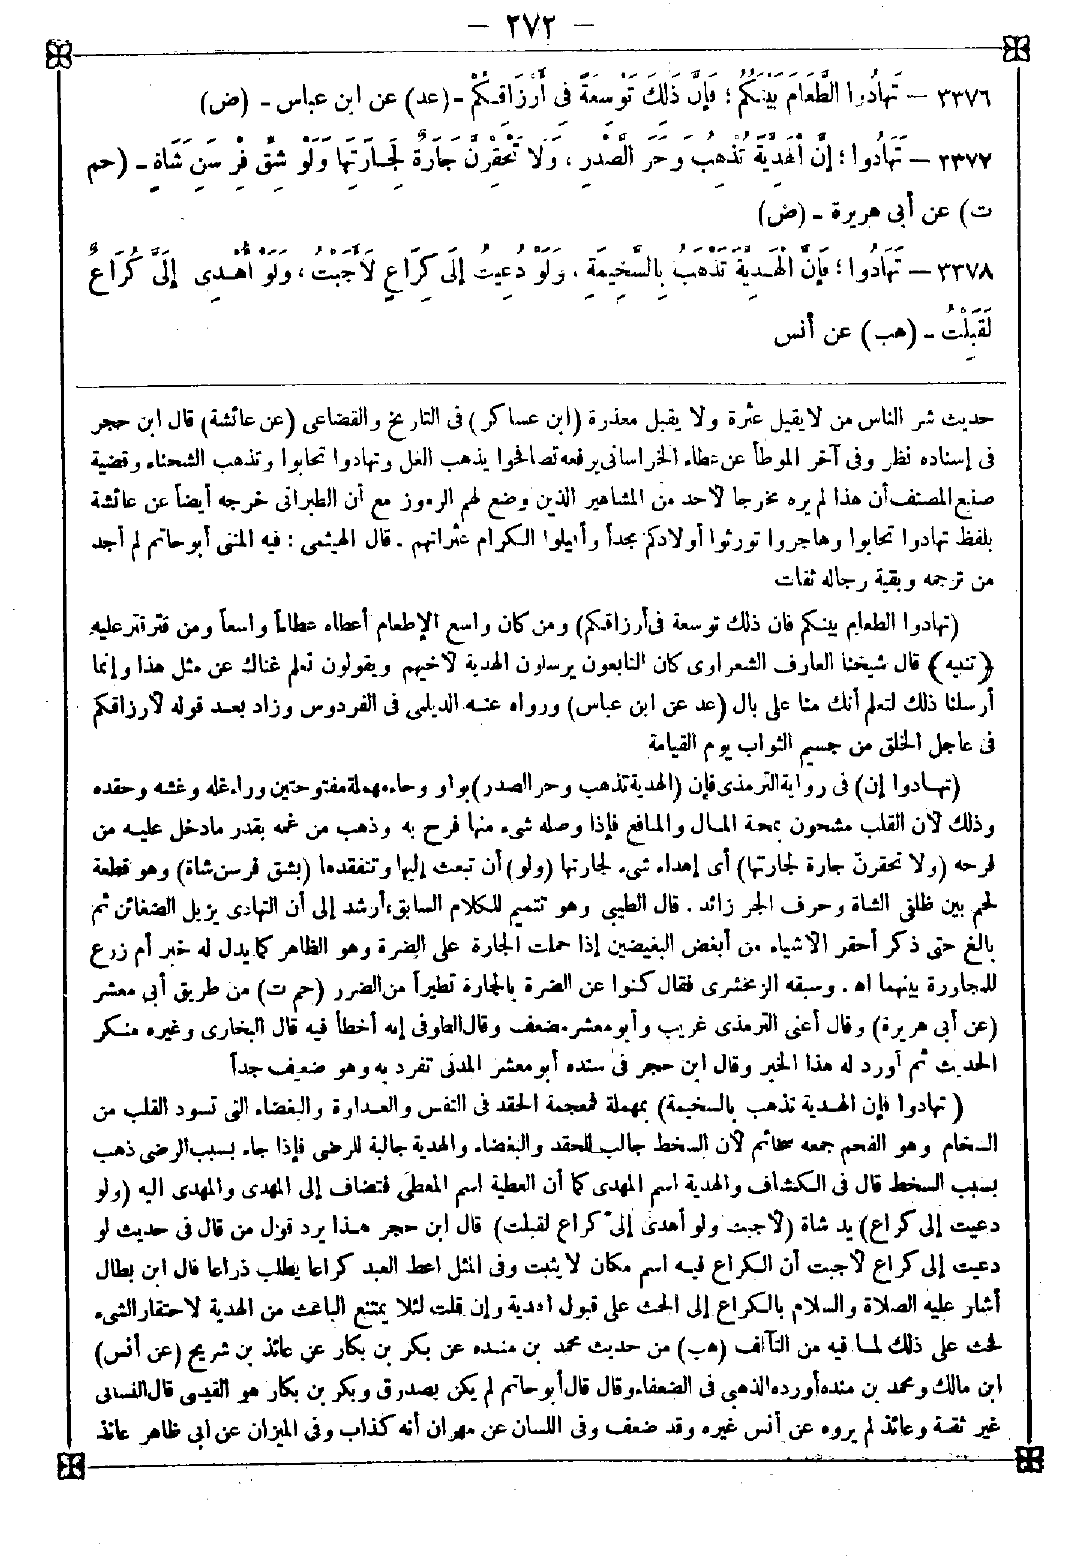 - ٢٧٢ -
٣٣٧٦ - تَهَادُوا الطَّعَامَ بَيْنَكُمْ؛ فَإِنَّ ذَلِكَ تَوْسِعَةٌ فِي أَرْزَاقِكُمْ - (عد) عن ابن عباس - (ض)
٣٣٧٧ - تَهَادُوا؛ إِنَّ الْهَدِيَّةَ تُذْهِبُ وَحَرَ الصَّدْرِ، وَلَا تَحْقِرَنَّ جَارَةٌ لِجَارَتِهَا وَلَوْ شِقَّ فِرْسَنِ شَاةٍ - (حم
ت) عن أبي هريرة - (ض)
٣٣٧٨ - تَهَادُوا؛ فَإِنَّ الْهَدِيَّةَ تَذْهَبُ بِالسَّخِيمَةِ، وَلَوْ دُعِيتُ إِلَى كُرَاعٍ لَأَجَبْتُ، وَلَوْ أُهْدِيَ إِلَيَّ كُرَاعٌ
لَقَبِلْتُ - (هب) عن أنس
حديث شر الناس من لا يقيل عثرة ولا يقبل معذرة (ابن عساكر) فى التاريخ والقضاعى (عن عائشة) قال ابن حجر
فى إسناده نظر وفى آخر الموطأ عن عطاء الخراسانى يرفعه تصافحوا يذهب الغل وتهادوا تحابوا وتذهب الشحناء وقضية
صنيع المصنف أن هذا لم يره مخرجا لأحد من المشاهير الذين وضع لهم الرموز مع أن الطبرانى خرجه أيضاً عن عائشة
بلفظ تهادوا تحابوا وهاجروا تورثوا أولادكم مجداً وأقيلوا الكرام عثراتهم . قال الهيثمى : فيه المثنى أبو حاتم لم أجد
من ترجمه وبقية رجاله ثقات
(تهادوا الطعام بينكم فان ذلك توسعة فى أرزاقكم) ومن كان واسع الإطعام أعطاه عطاءاً واسعاً ومن قتر قتر عليه
(تنبيه) قال شيخنا العارف الشعراوى كان التابعون يرسلون الهدية لأخيهم ويقولون نعلم غناك عن مثل هذا وإنما
أرسلنا ذلك لتعلم أنك منا على بال (عد عن ابن عباس) ورواه عنه الديلمى فى الفردوس وزاد بعد قوله لأرزاقكم
فى عاجل الخلق من جسيم الثواب يوم القيامة
(تهادوا إن) فى رواية الترمذى فإن (الهدية تذهب وحر الصدر) بواو وحاء مهملة مفتوحتين وراء غله وغشه وحقده
وذلك لأن القلب مشحون بمحبة المال والمنافع فإذا وصله شىء منها فرح به وذهب من غمه بقدر ما دخل عليه من
فرحه (ولا تحقرنّ جارة لجارتها) أى إهداء شىء لجارتها (ولو) أن تبعث إليها وتتفقدها (بشق فرسن شاة) وهو قطعة
لحم بين ظلفى الشاة وحرف الجر زائد . قال الطيبى وهو تتميم للكلام السابق، أرشد إلى أن التهادى يزيل الضغائن ثم
بالغ حتى ذكر أحقر الأشياء من أبغض البغيضين إذا حملت الجارة على الضرة وهو الظاهر كما يدل له خبر أم زرع
للمجاورة بينهما اه . وسبقه الزمخشرى فقال كنوا عن الضرة بالجارة تطيراً من الضرر (حم ت) من طريق أبى معشر
(عن أبى هريرة) وقال أعنى الترمذى غريب وأبو معشر مضعف وقال الطوفى إنه أخطأ فيه قال البخارى وغيره منكر
الحديث ثم أورد له هذا الخبر وقال ابن حجر فى سنده أبو معشر المدنى تفرد به وهو ضعيف جداً
(تهادوا فإن الهدية تذهب بالسخيمة) بمهملة فمعجمة الحقد فى النفس والعداوة والبغضاء التى تسود القلب من
السخام وهو الفحم جمعه سخائم لأن السخط جالب للحقد والبغضاء والهدية جالبة للرضى فإذا جاء بسبب الرضى ذهب
بسبب السخط قال فى الكشاف والهدية اسم المهدى كما أن العطية اسم المعطى فتضاف إلى المهدى والمهدى اليه (ولو
دعيت إلى كراع) يد شاة (لأجبت ولو أهدى إلىّ كراع لقبلت) قال ابن حجر هذا يرد قول من قال فى حديث لو
دعيت إلى كراع لأجبت أن الكراع فيه اسم مكان لا يثبت وفى المثل اعط العبد كراعا يطلب ذراعا قال ابن بطال
أشار عليه الصلاة والسلام بالكراع إلى الحث على قبول الهدية وإن قلت لئلا يمتنع الباعث من الهدية لاحتقار الشىء
فحث على ذلك لما فيه من التآلف (هب) من حديث محمد بن منده عن بكر بن بكار عن عائذ بن شريح (عن أنس)
ابن مالك ومحمد بن منده أورده الذهبى فى الضعفاء وقال قال أبو حاتم لم يكن بصدوق وبكر بن بكار هو القيسى قال النسائى
غير ثقة وعائذ لم يروه عن أنس غيره وقد ضعف وفى اللسان عن مهران أنه كذاب وفى الميزان عن أبى طاهر عائذ